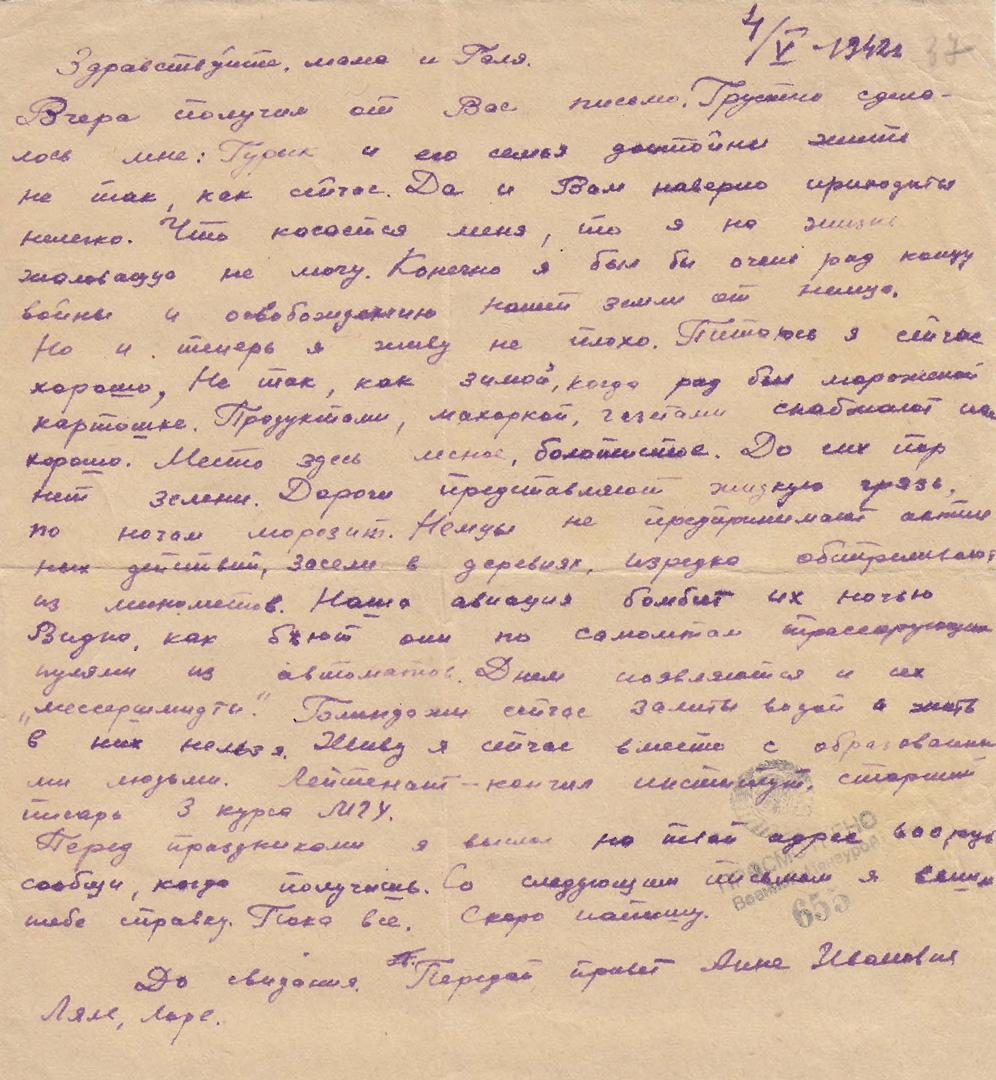 4/V-1942г
37
Здравствуйте, мама и Галя.
Вчера получил от Вас письмо. Грустно сдела-
лось мне: Гурык и его семья достойны жить
не так, как сейчас. Да и Вам наверно приходится
нелегко. Что касается меня, то я на жизнь
жаловаться не могу. Конечно я был бы очень рад концу
войны и освобождению нашей земли от немца.
Но и теперь я живу не плохо. Питаюсь я сейчас
хорошо, Не так, как зимой, когда рад был мороженой
картошке. Продуктами, махоркой, газетами снабжают нас
хорошо. Место здесь лесное, болотистое. До сих пор
нет зелени. Дороги представляют жидкую грязь,
по ночам морозит. Немцы не предпринимают актив
ных действий, засели в деревнях, изредка обстреливают
из минометов. Наша авиация бомбит их ночью
Видно, как бьют они по самолетам трассирующими
пулями из автоматов. Днем появляются и их
„мессершмидты". Блиндажи сейчас залиты водой и жить
в них нельзя. Живу я сейчас вместе с образованны
ми людьми. Лейтенант – кончил институт, старший
писарь 3 курса МГУ.
Перед праздниками я выслал на твой адрес 600 руб
сообщи, когда получишь. Со следующим письмом я вышлю
тебе справку. Пока всё. Скоро напишу.
До свидания. Передай привет Анне Ивановне
Ляле, Ларе.
ПРОСМОТРЕНО
Военной Цензурой
655